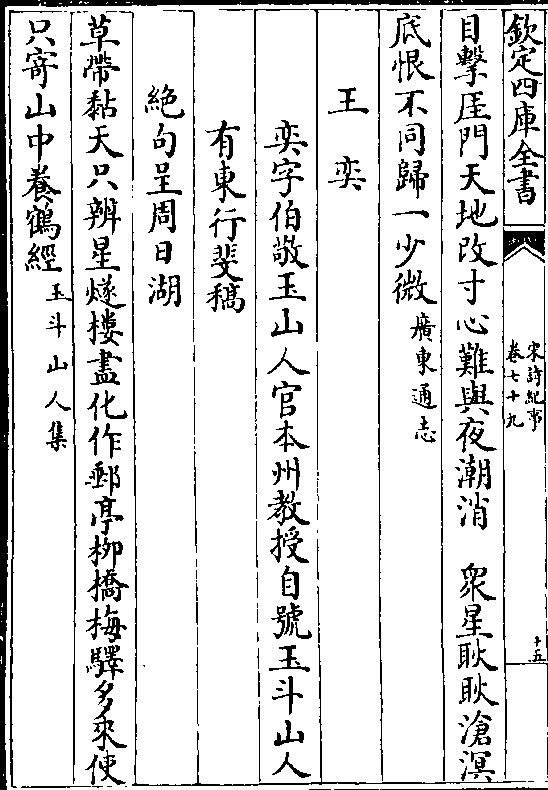 欽定四庫全書
宋詩紀事
卷七十九
十五
目擊厓門天地改寸心難與夜潮消　眾星耿耿滄溟
底恨不同歸一少微廣東通志
王奕
奕字伯敬玉山人官本州教授自號玉斗山人
有東行斐稿
絶句呈周日湖
草帶黏天只辨星燧樓盡化作郵亭柳橋梅驛多來使
只寄山中養鶴經玉斗山人集